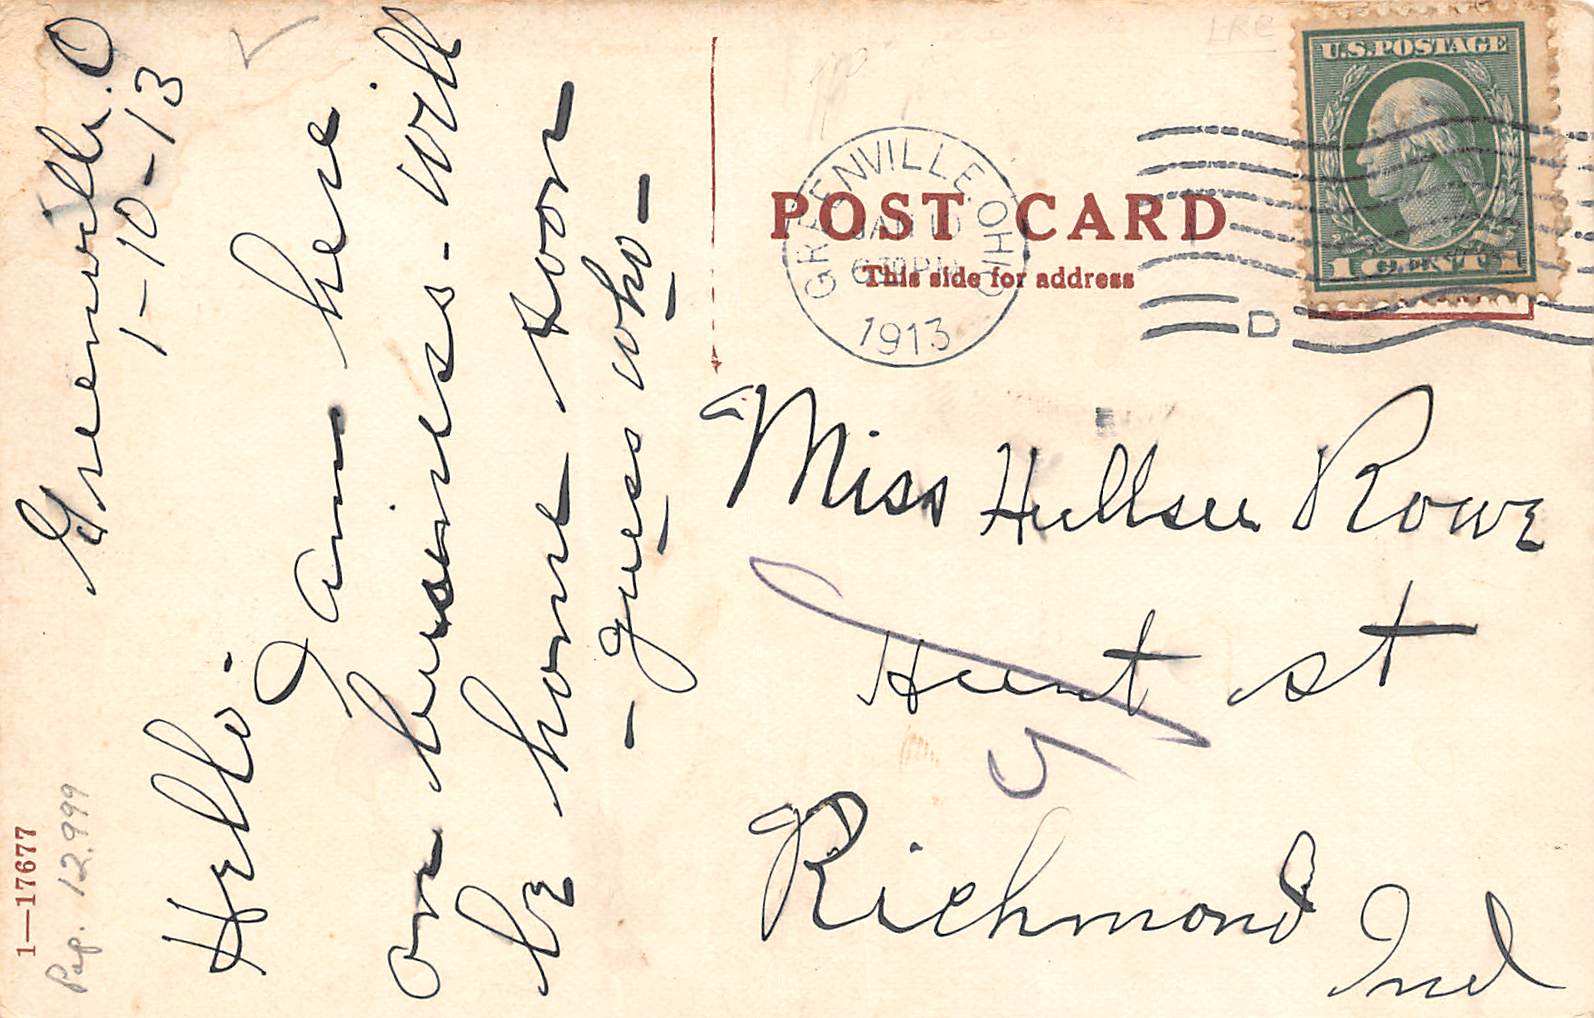 Greenville. O
1-10-13
Hello-
I am here
on business - will
be home soon
- guess who -
1—17677
Pap. 12.999
LRC
U.S. POSTAGE
GREENVILLE, OHIO
JAN 10
630 PM
1913
D
POST CARD
This side for address
Miss Hullsee Rowe
Hunt st
Richmond
Ind